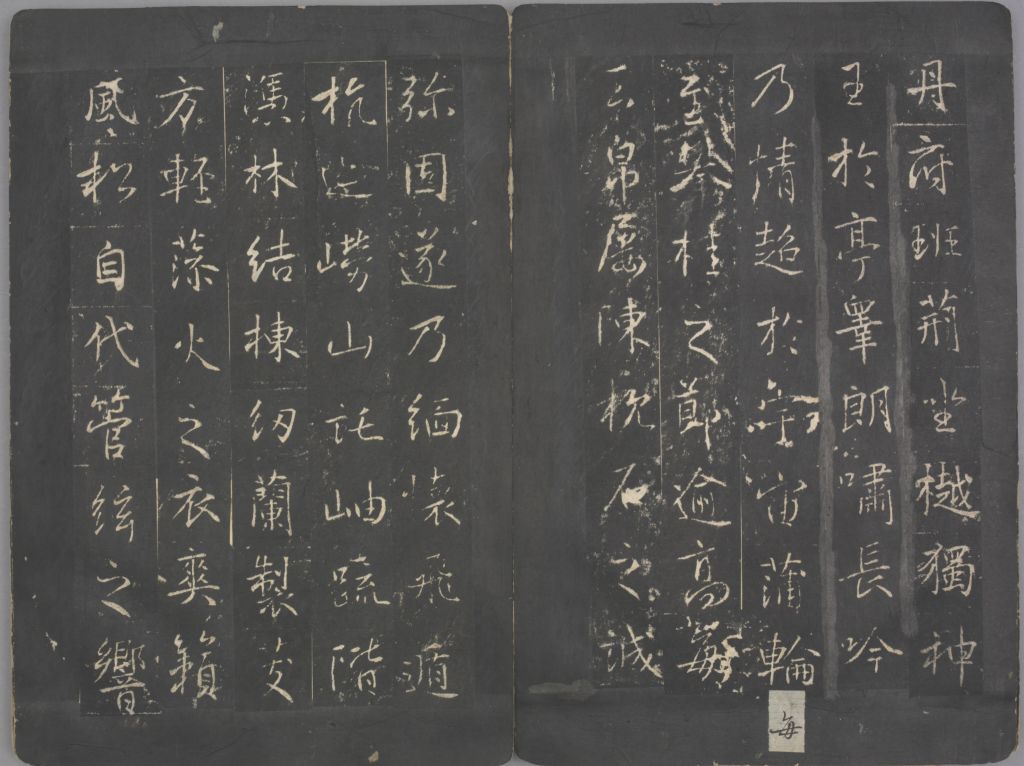 丹府班荊坐樾獨神
王於亭皋朗嘯長吟
乃情超於宇宙蒲輪
每
至攀桂之節逾高
帛屢陳枕石之誠
彌固遂乃緬裝飛遁
抗迹嶗山託岫疏階
憑林結棟紉蘭製芰
方輕藻火之衣爽籟
風松自代管絃之響